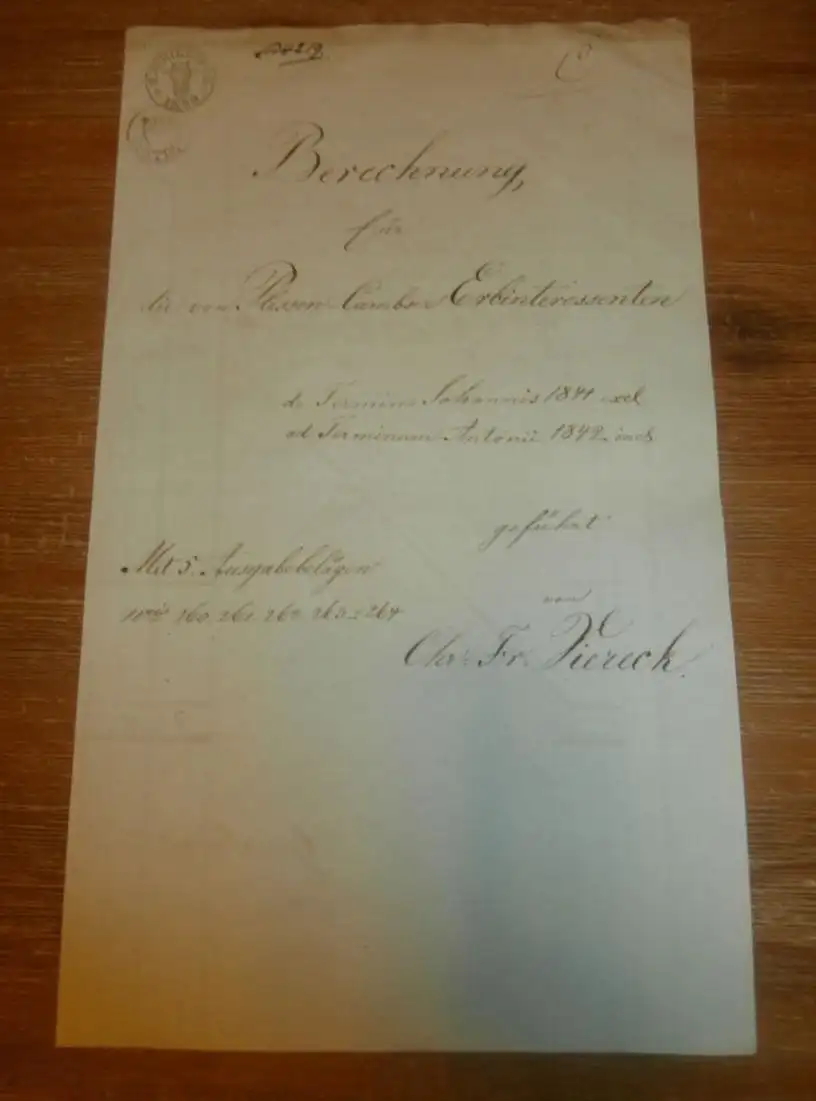 Berechnung,
für
die von Plessen-Cambser Erbinteressenten
de Termino Johannis 1841 excl
ad Terminum Antonii 1842. incl
geführt
Mit 5. Ausgabebelägen
von
260. 261. 262. 263. 264
Chr: Fr. Viereck.